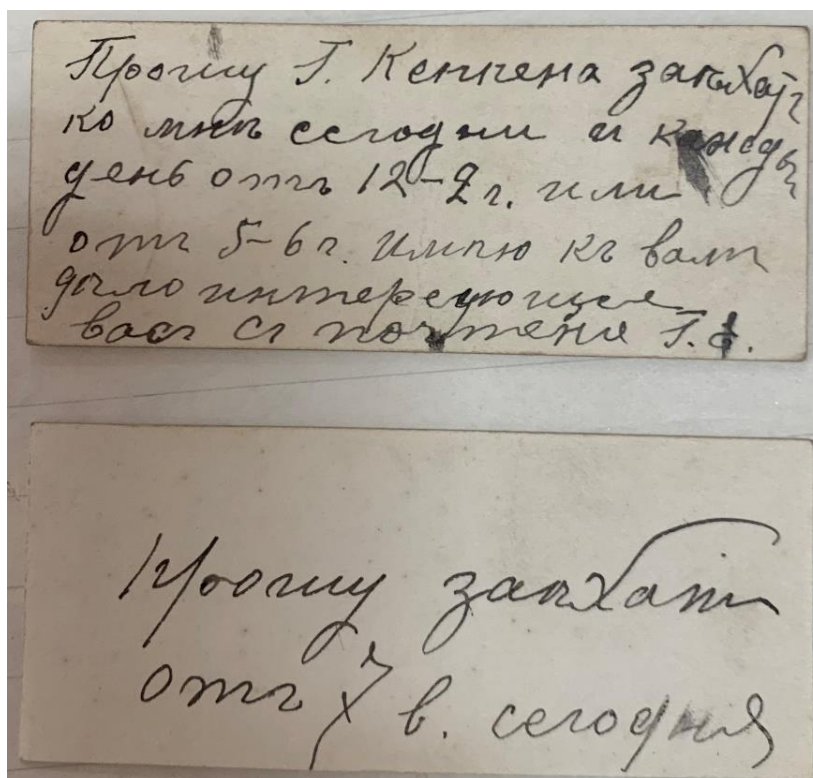 Прошу Г. Кеннена заѣхать
ко мнѣ сегодни и кажды
день отъ 12-2 ч. или
отъ 5-6 ч. Имѣю къ вамъ
дѣло интересующее
васъ Съ почтение Г.
Прошу заѣхать
отъ 7 в. сегодня